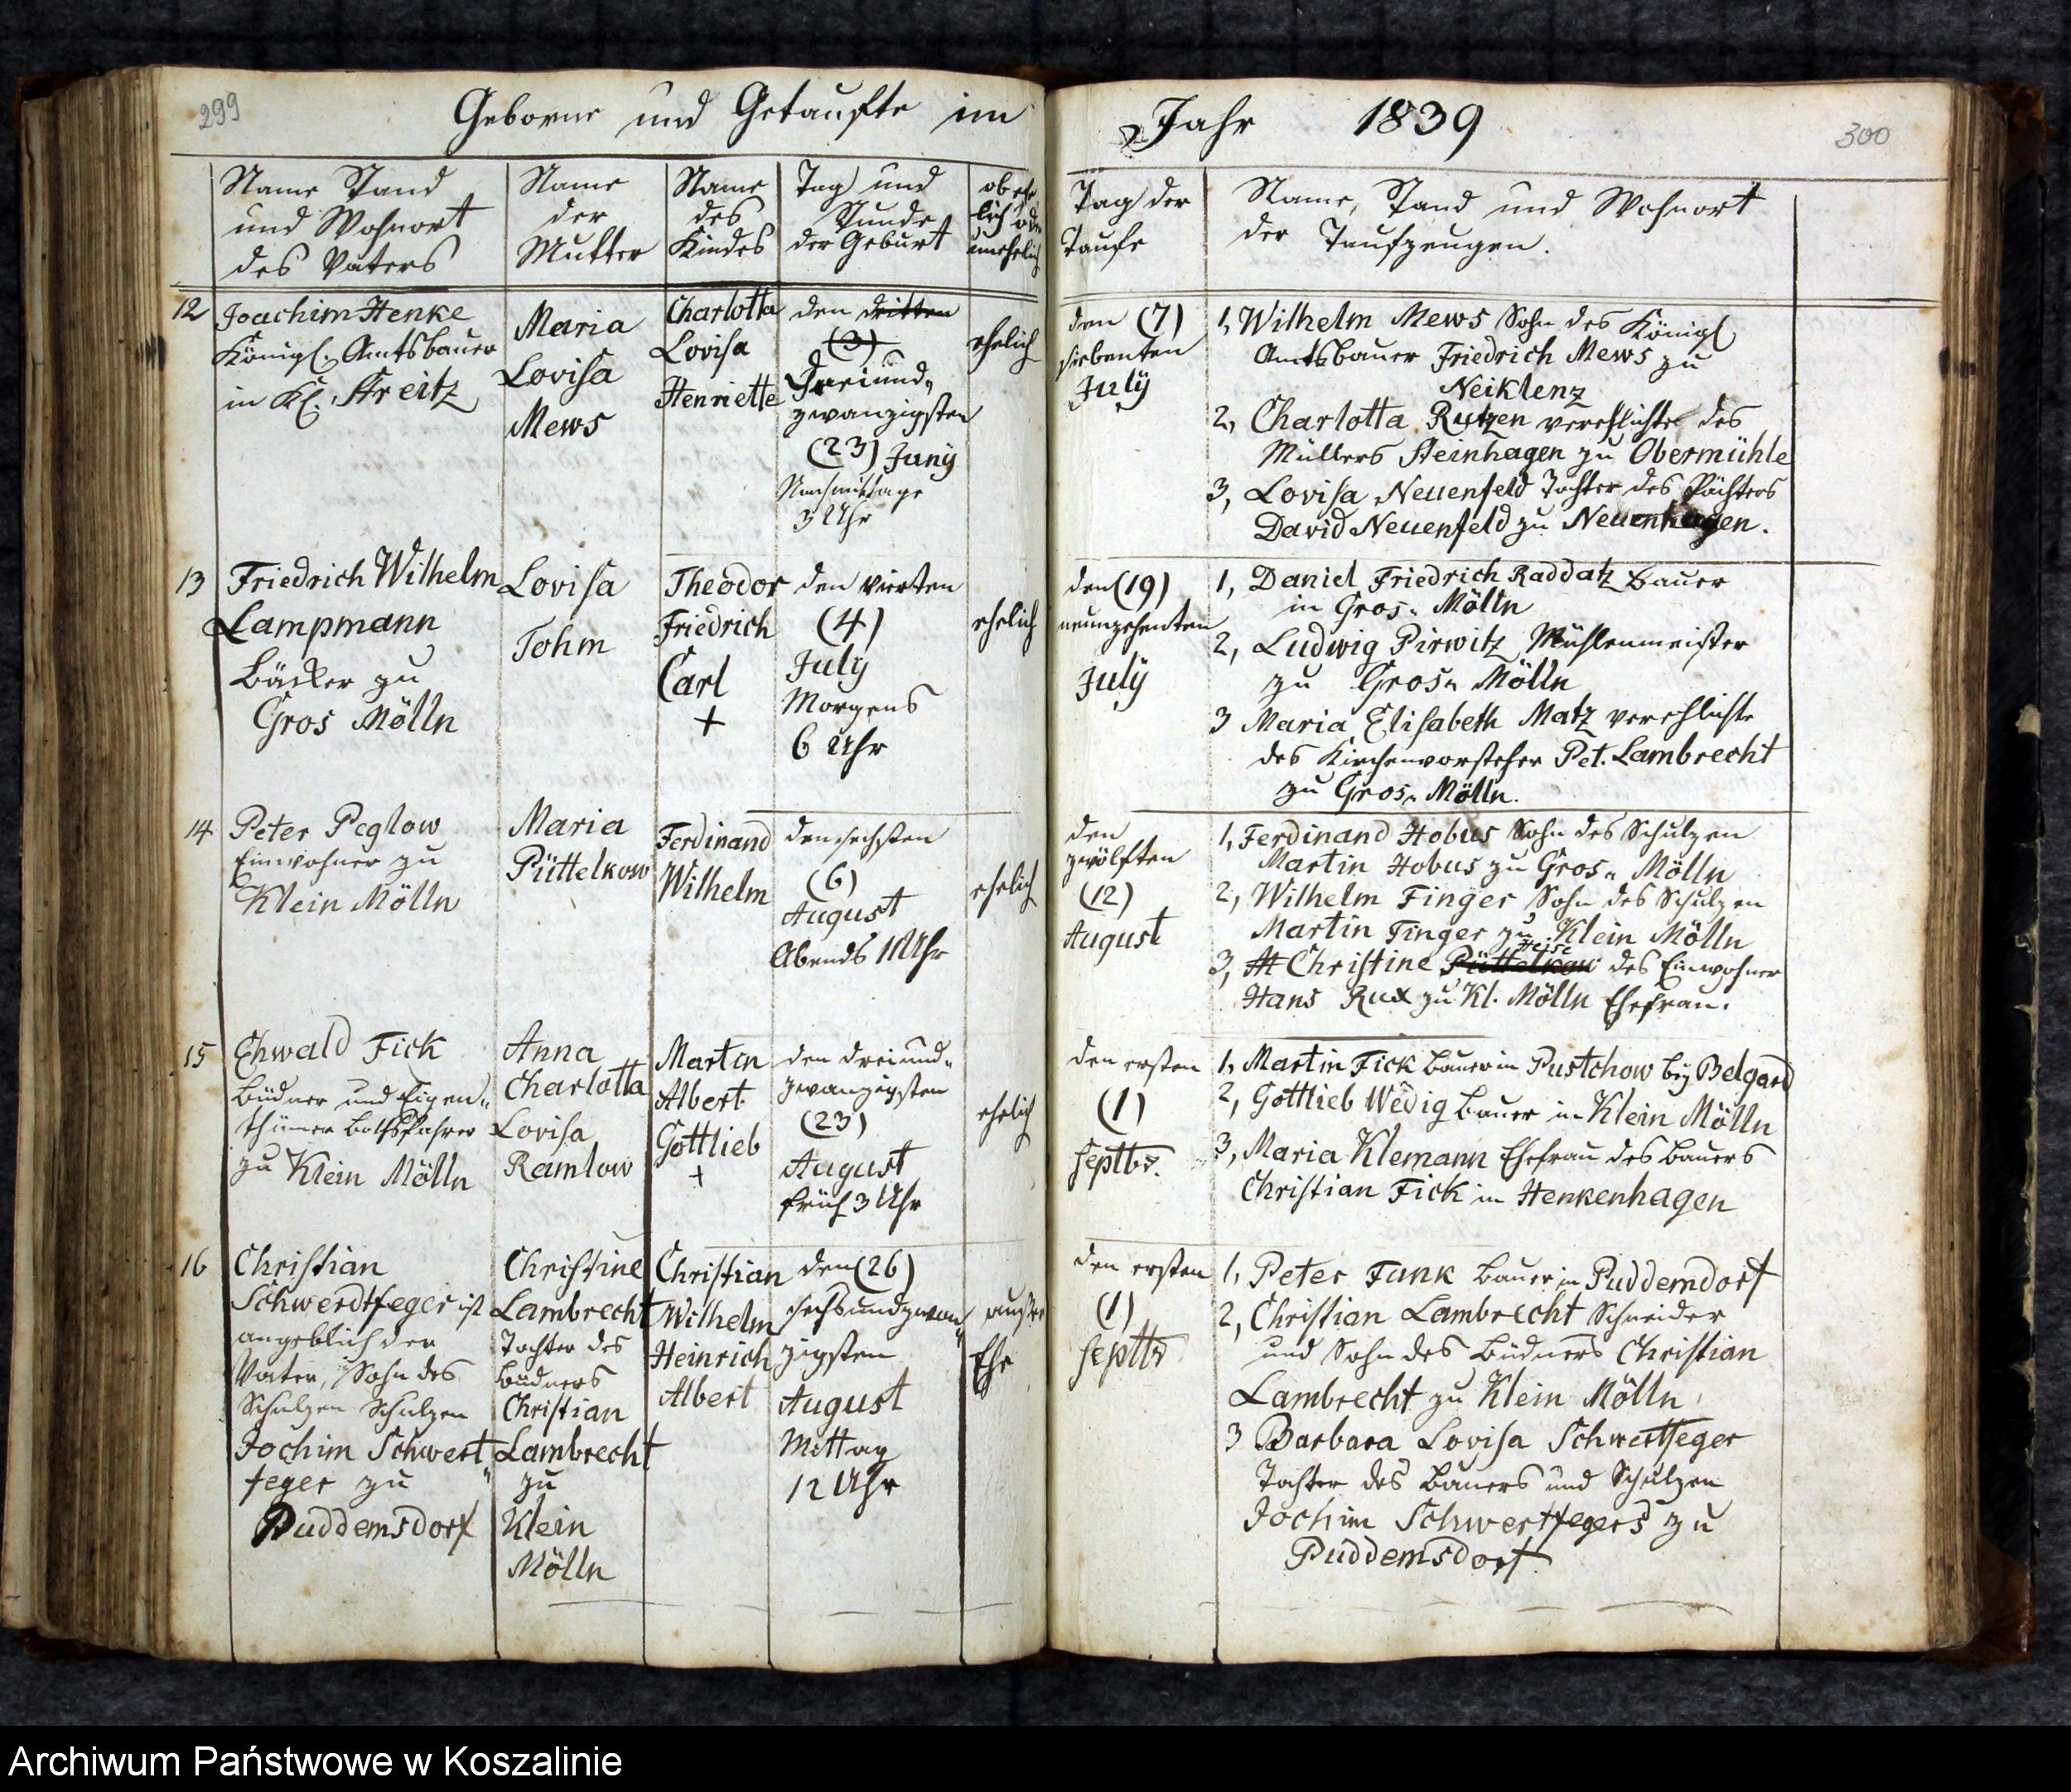 299
Geborne und Getaufte im
Name Stand
und Wohnort
des Vaters
Name
der
Mutter
Name
des
Kindes
Tag und
Stunde
der Geburt
ob ehe
lich oder
unehelich
12
Joachim Henke
Königl. Amtsbauer
in Kl. Streitz
Maria
Lovisa
Mews
Charlotta
Lovisa
Henriette
den dritten
(3)
Dreiund„
zwanzigsten
(23) Juny
Nachmittags
3 Uhr
ehelich
13
Friedrich Wilhelm
Lampmann
Bäcker zu
Gros Mölln
Lovisa
Tohm
Theodor
Friedrich
Carl
+
den vierten
(4)
July
Morgens
6 Uhr
ehelich
14
Peter Peglow
Einwohner zu
Klein Mölln
Maria
Püttelkow
Ferdinand
Wilhelm
den sechsten
(6)
August
Abends 11 Uhr
ehelich
15
Ehwald Fick
Büdner und Eigen„
thümer Bothsfahrer
zu Klein Mölln
Anna
Charlotta
Lovisa
Ramlow
Martin
Albert
Gottlieb
+
den dreiund„
zwanzigsten
(23)
August
früh 3 Uhr
ehelich
16
Christian
Schwerdtfeger ist
angeblich der
Vater, Sohn des
Schulzen Schulzen
Jochim Schwert„
feger zu
Puddemsdorf
Christine
Lambrecht
Tochter des
Büdners
Christian
Lambrecht
zu
Klein
Mölln
Christian
Wilhelm
Heinrich
Albert
den (26)
sechsundzwan„
zigsten
August
Mittag
12 Uhr
außer
Ehe
Jahr 1839
300
Tag der
Taufe
Name, Stand und Wohnort
der Taufzeugen.
den (7)
siebenten
July
1, Wilhelm Mews Sohn des Königl
Amtsbauer Friedrich Mews zu
Neiklenz
2, Charlotta Rutzen verehlichte des
Müllers Steinhagen zu Obermühle
3, Lovisa Neuenfeld Tochter des Pächters
David Neuenfeld zu Neuenhagen.
den (19)
neunzehenten
July
1, Daniel Friedrich Raddatz Bauer
in Gros„ Mölln
2, Ludwig Pirwitz Mühlenmeister
zu Gros„ Mölln
3 Maria Elisabeth Matz verehlichte
des Kirchenvorsteher Pet. Lambrecht
zu Gros„ Mölln.
den
zwölften
(12)
August
1, Ferdinand Hobus Sohn des Schulzen
Martin Hobus zu Gros„ Mölln
2, Wilhelm Finger Sohn des Schulzen
Martin Finger zu Klein Mölln
Heise
3, Christine Püttelkow des Einwohner
Hans Rux zu Kl. Mölln Ehefrau.
den ersten
(1)
Septbr.
1, Martin Fick Bauer in Pustchow bey Belgard
2, Gottlieb Wedig Bauer in Klein Mölln
3, Maria Klemann Ehefrau des Bauers
Christian Fick in Henkenhagen
den ersten
(1)
Septbr
1, Peter Funk Bauer in Puddemdorf
2, Christian Lambrecht Schneider
und Sohn des Büdners Christian
Lambrecht zu Klein Mölln
3 Barbara Lovisa Schwertfeger
Tochter des Bauers und Schulzen
Jochim Schwertfegers zu
Puddemsdorf.
Archiwum Państwowe w Koszalinie